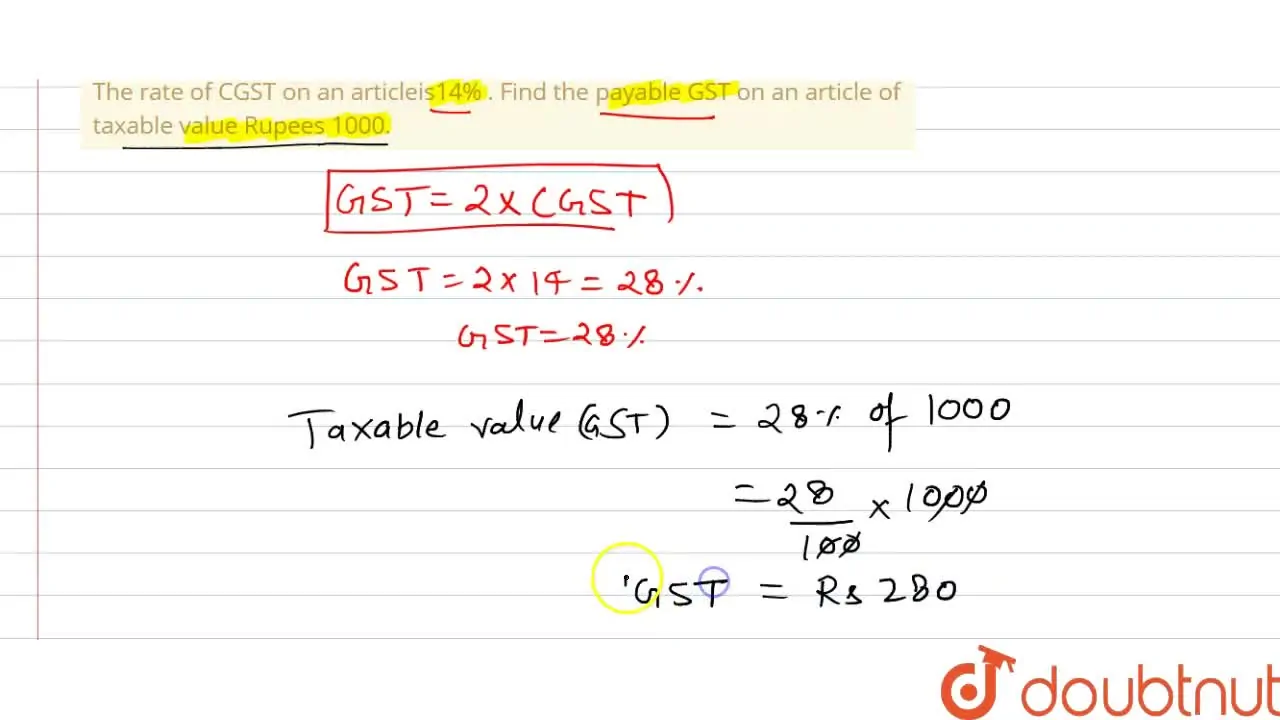 The rate of CGST on an articleis14% . Find the payable GST on an article of
taxable value Rupees 1000.
GST = 2 x CGST
GST = 2 x 14 = 28 %
GST = 28 %
Taxable value (GST) = 28% of 1000
= 28/100 x 1000
GST = Rs 280
doubtnut